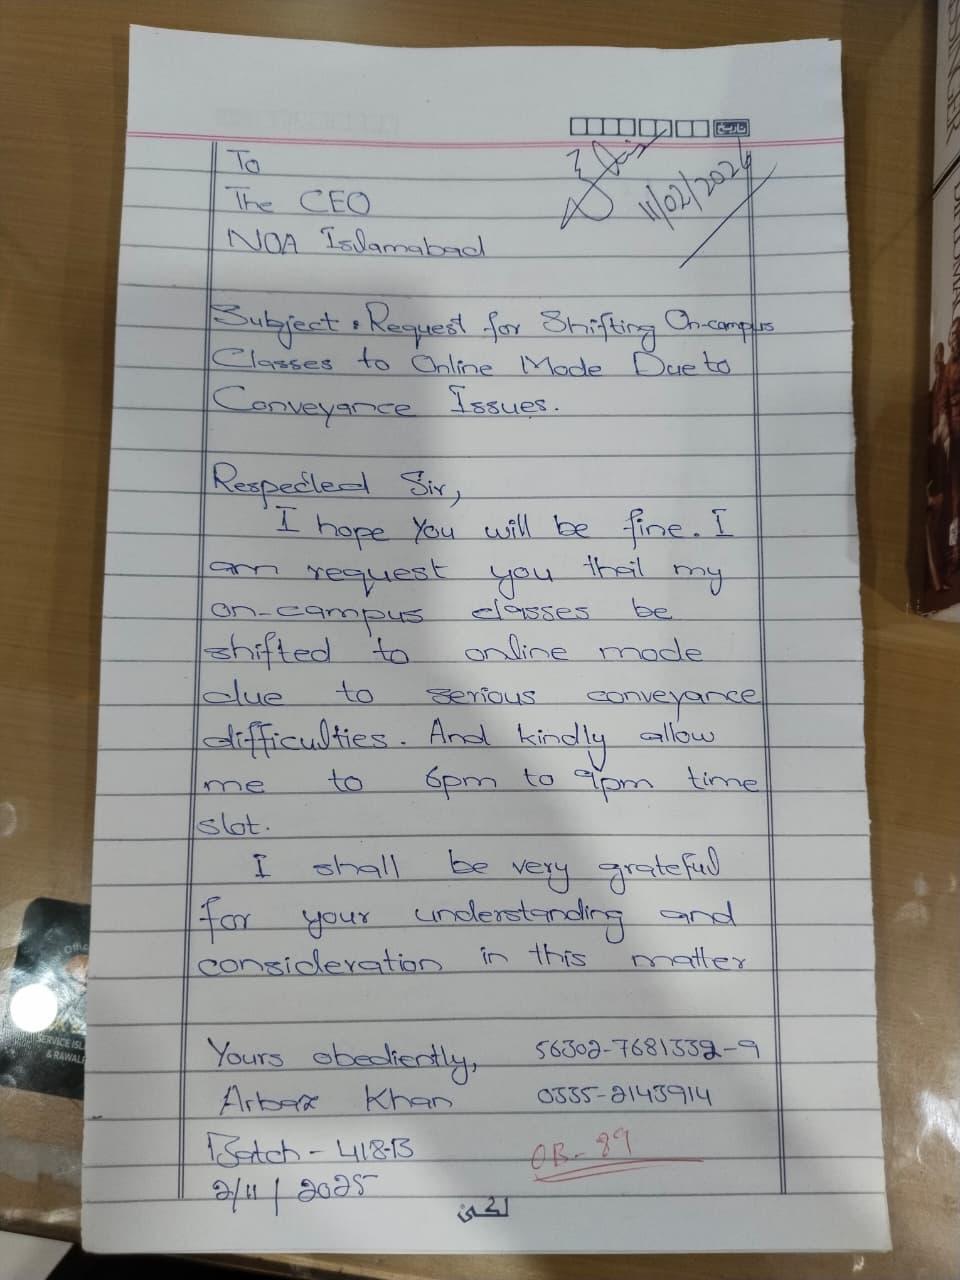 تاریخ
11/02/2026
To
The CEO
NOA Islamabad
Subject : Request for Shifting On-campus
Classes to Online Mode Due to
Conveyance Issues.
Respected Sir,
I hope you will be fine. I
am request you that my
on-campus classes be
shifted to online mode
due to serious conveyance
difficulties. And kindly allow
me to 6pm to 9pm time
slot.
I shall be very grateful
for your understanding and
consideration in this matter
Yours obediently, 56302-7681332-9
Arbaz Khan 0335-2143914
Batch - 418-B OB-89
2/11/2025
SERVICE ISL
& RAWALP